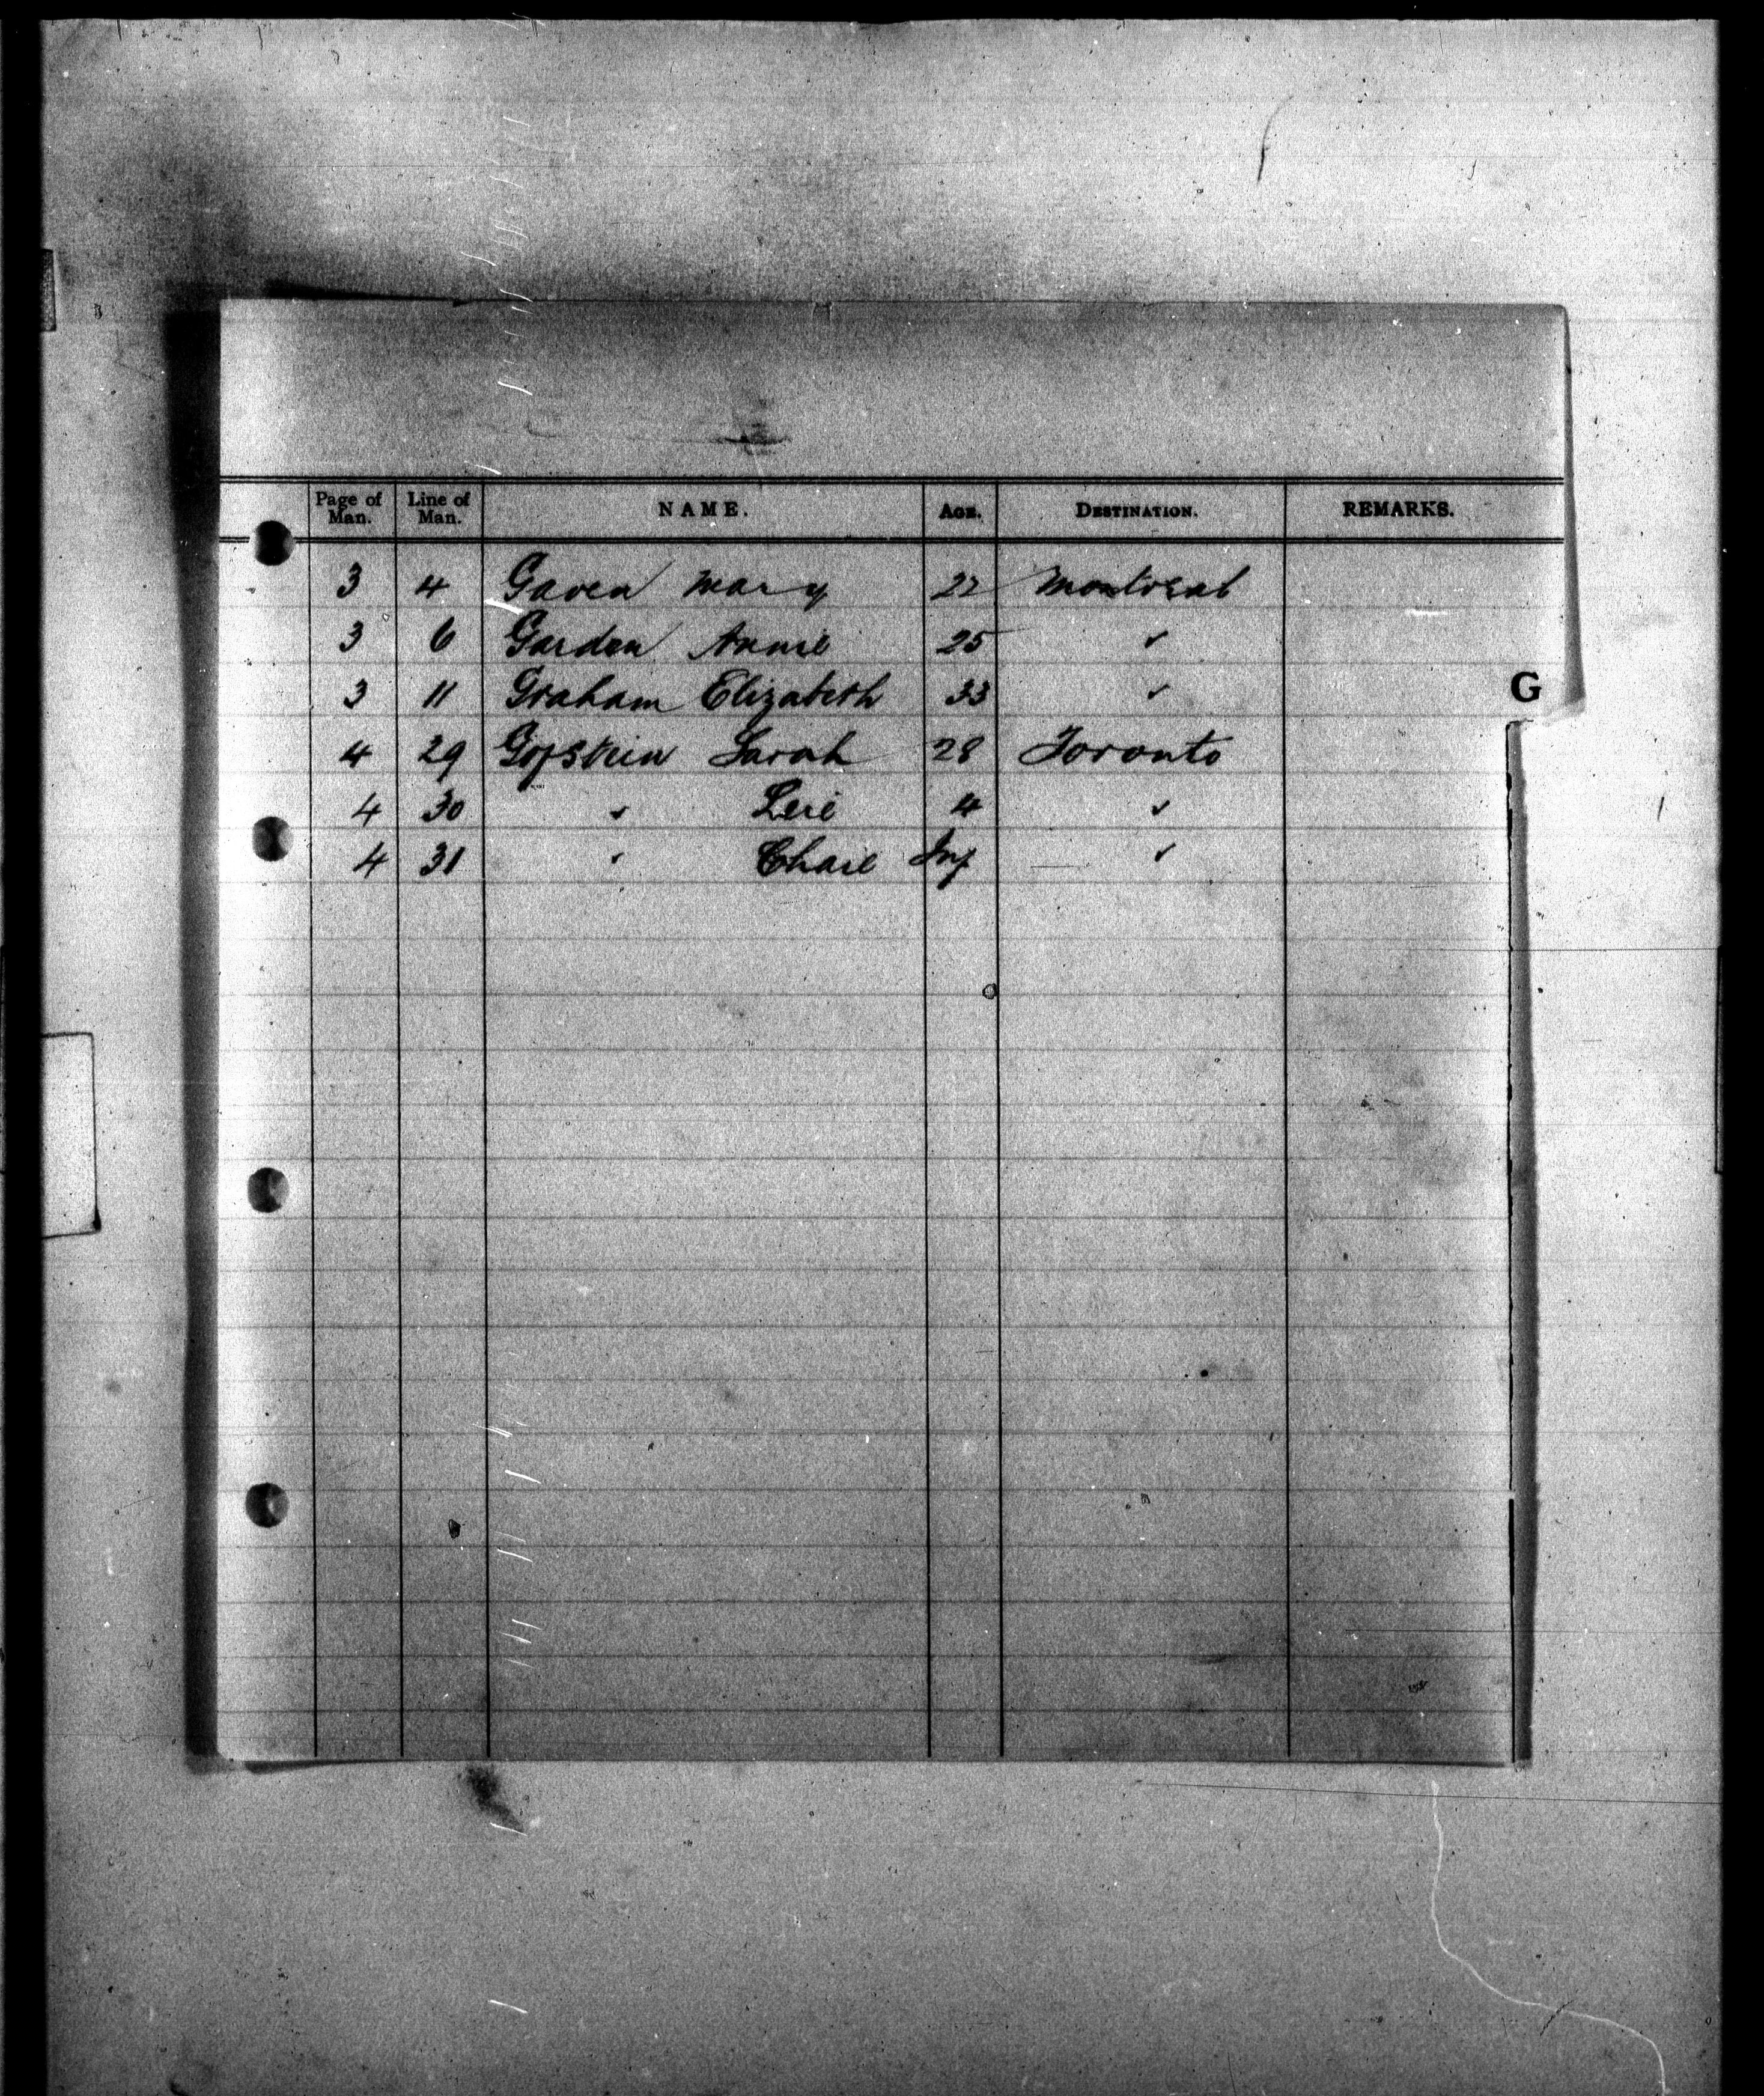 Page of Man. Line of Man. NAME. AGE. DESTINATION. REMARKS.
3 4 Gaven Mary 22 Montreal
3 6 Garden Annie 25 "
3 11 Graham Elizabeth 33 "
G
4 29 Gopstein Sarah 28 Toronto
4 30 " Leie 4 "
4 31 " Chaie Inf "